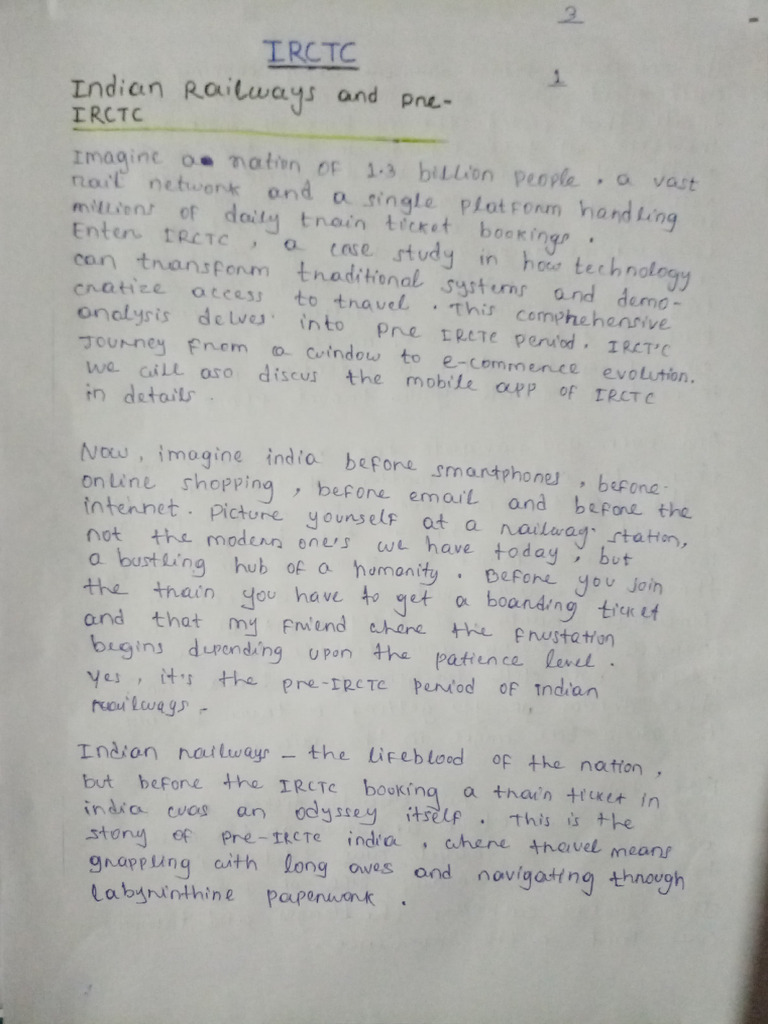 3
IRCTC
1
Indian Railways and pre-
IRCTC
Imagine a nation of 1.3 billion people. a vast
rail network and a single platform handling
millions of daily train ticket bookings.
Enter IRCTC, a case study in how technology
can transform traditional systems and demo-
cratize access to travel. This comphehensive
analysis delves into pre IRCTC period. IRCTC
Journey from a window to e-commence evolution.
we will aso discus the mobile app of IRCTC
in details.
Now, imagine india before smartphones, before
online shopping, before email and before the
internet. picture yourself at a railway station,
not the modern one's we have today, but
a bustling hub of a humanity. Before you join
the train you have to get a boarding ticket
and that my friend where the frustation
begins depending upon the patience level.
yes, it's the pre-IRCTC period of indian
railways-
Indian railways - the lifeblood of the nation,
but before the IRCTC booking a train ticket in
india was an odyssey itself. This is the
story of pre-IRCTC india, where travel means
grappling with long owes and navigating through
labyrinthine paperwork.